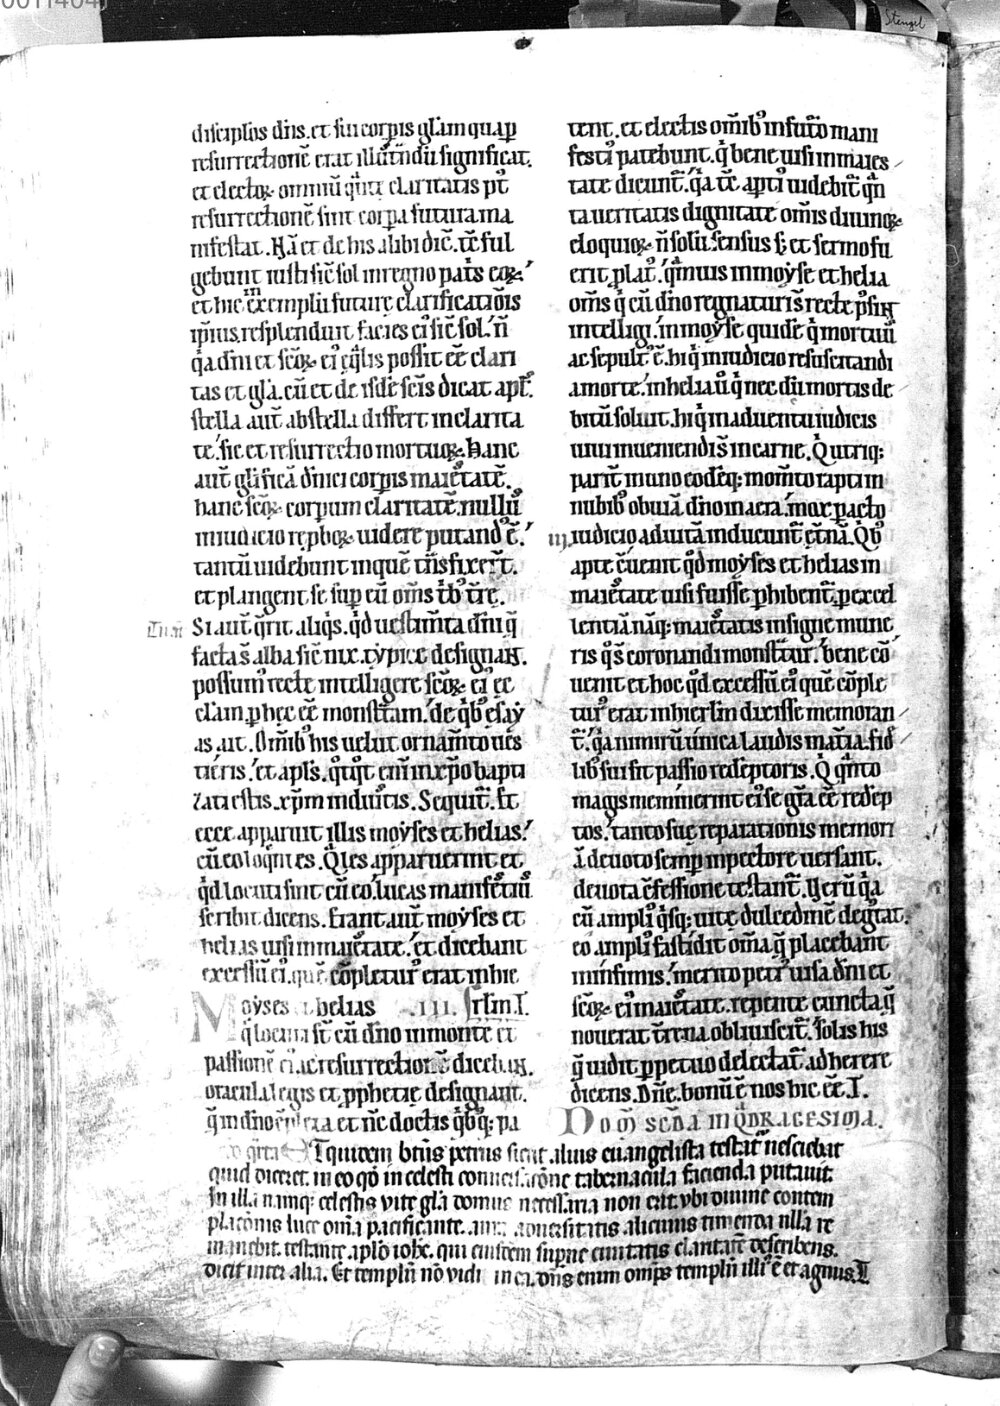 discip̄los dn̄s. et sui corp̄is gl̄iam qua p̱
resurrectionē erat illūtndū significat.
et electoꝝ omniū q̄nta claritatis p̱t
resurrectionē sint corpa futura ma
nifestat. Nā et de his alibi dic̄. tc̄ ful
gebunt iusti sic̄ sol in regno pat̄s eoꝝ.
et hic in exemplū futurę clarificatiōis
ip̄ius. resplenduit facies eiꝰ sic̄ sol. n̄
q̇a dn̄i et sc̄oꝝ eiꝰ eq̄lis possit ee̅ clari
tas et gl̄a. cū et de isdē sc̄is dicat apl̄s.
stella aut̄ ab stella differt in clarita
te. sic et resurrectio mortuoꝝ. Hanc
aut̄ glīficā dn̄ici corp̄is maiestatē.
hanc sc̄oꝝ corporum claritatē. nullꝰ
in iudicio rep̱boꝝ uidere putandꝰ ē.
tantū uidebunt in quē tn̄sfixert̄.
et plangent se sup eū om̄s tb̄ꝰ trę̄.
Si aut̄ q̄rit aliq̇s. qd̄ uestim̄ta dn̄i q̄
facta s̄ alba sic̄ nix. typice designaꝝ.
possumꝰ recte intelligere sc̄oꝝ eiꝰ ec
cl̄am p̱ hec ee̅ monst̄tam. de q̇bꝰ esaẏ
as ait. Om̄ibꝰ his uelut ornam̄to ues
tieris. et apl̄s. q̇tq̇t eni̅ in xp̄o bapti
zati estis. xp̄m induistis. Sequit̄. Et
ecce apparuit illis moẏses et helias.
cū eo loq̄ntes. Q̇les apparuerint et
qd̄ locuti sint cū eo. lucas manifestiꝰ
scribit dicens. Erant aut̄ moẏses et
helias uisi in maiestate. et dicebant
excessū eiꝰ. quē cōpleturꝰ erat in hie
Moẏses et helias .III. srl̄m. I.
q̇ locuti st̄ cū dn̄o in monte et
passionē eiꝰ ac resurrectionē dicebaꝝ.
oracula legis et p̱phetię designant.
q̄ in dn̄o cōpleta et nc̄ doctis q̇bꝰq; pa
tent. et electis om̄ibꝰ in futuro mani
festiꝰ patebunt. q̇ bene uisi in maies
tate dicunt̄. q̇a tc̄ aptiꝰ uidebit̄ q̄n
ta ueritatis dignitate om̄is diuinoꝝ
eloquioꝝ n̄ solū sensus s; et sermo fu
erit plat̄ꝰ. q̄muis in moẏse et helia
om̄s q̇ cū dn̄o regnaturi s̄ recte p̱siꝝ
intelligi. in moẏse quidē q̇ mortuꝰ
ac sepult̄ꝰ ē. hi q̇ in iudicio resuscitandi
a morte. in helia ū q̇ nec dū mortis de
bitū soluit. hi q̇ in aduentu iudicis
uiui inueniendi s̄ in carne. Q̇ utriq;
parit̄ in uno eodēq; mom̄to rapti in
nubibꝰ obuiā dn̄o in aera. mox pacto
iudicio ad uitā inducunt̄ et̄nā. Qbꝰ
apte cūenit qd̄ moẏses et helias in
maiestate uisi fuisse p̱hibent̄. p̱ excel
lentiā nāq; maiestatis insigne mune
ris q̇ s̄ coronandi monst̄tur. bene cō
uenit et hoc qd̄ excessū eiꝰ quē cōple
turꝰ erat in hierl̄m dixisse memoran
t̄. q̇a nimirū unica laudis mat̄ia fid̄
libꝰ sui fit passio redēptoris. Q̇ q̄nto
magis meminerint eiꝰ se grā ee̅ redēp
tos. tanto suę reparationis memori
ā deuoto semp in pectore uersant.
deuota cf̄essione testant̄. Ueꝝ q̇a
cū ampliꝰ q̇sq; uitę dulcedinē degustat.
eo ampliꝰ fastidit om̄a q̄ placebant
in infimis. merito petrꝰ uisa dn̄i et
sc̄oꝝ eiꝰ maiestate. repente cuncta q̄
nouerat tr̄ena obliuiscit̄. solis his
q̄ uidit p̱petuo delectat̄ adherere
dicens. Dn̄e. bonū ē nos hic ee̅. I.
DOM̄ SCD̄A IN QDRAGESIMA.
At quidem bt̄us petrus sicut alius euangelista testat̄ nesciebat
quid diceret. in eo qd̄ in celesti conuersatione tabernacula facienda putauit.
In illa namq; celestis uite gl̄a domus necessaria non erit. ubi diuine contem
plationis luce om̄ia pacificante. aura aduersitatis alicuius timenda nulla re
manebit. testante apl̄o ioh̄e. qui eiusdem supne ciuitatis claritatē describens.
dicit inter alia. Et templū nō uidi in ea. dn̄s enim omīps templū illiꝰ ē et agnus. I